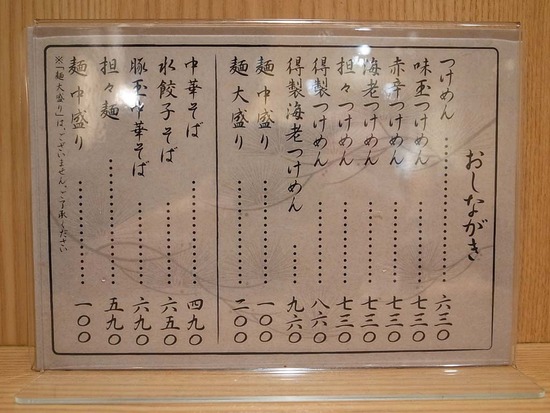 おしながき
つけめん…………六三〇
味玉つけめん…………七三〇
赤辛つけめん…………七三〇
海老つけめん…………七三〇
担々つけめん…………七三〇
得製つけめん…………八六〇
得製海老つけめん……九六〇
麺中盛り…………一〇〇
麺大盛り…………二〇〇
中華そば…………四九〇
水餃子そば…………六五〇
豚玉中華そば…………六九〇
担々麺…………五九〇
麺中盛り…………一〇〇
※「麺大盛り」は、ございません。ご了承ください